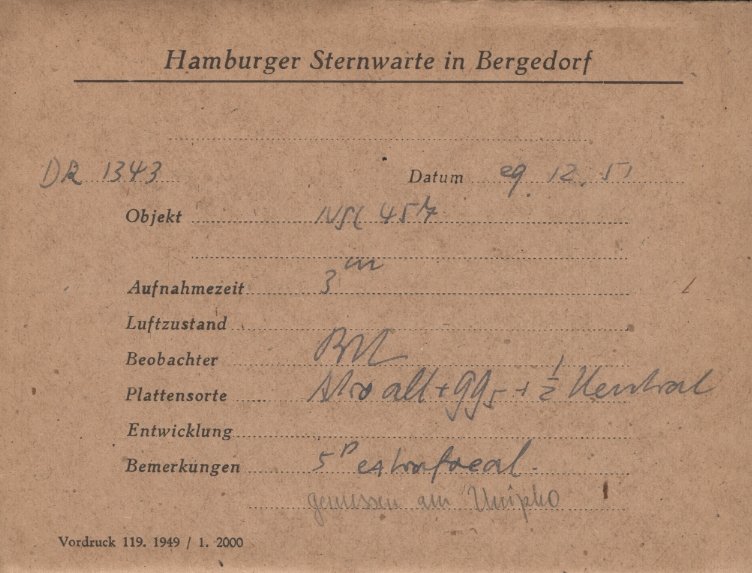 Hamburger Sternwarte in Bergedorf
DR 1343 Datum 29. 12. 51
Objekt NGC 457
Aufnahmezeit 3 m
Luftzustand
Beobachter
Plattensorte Astro alt + GG5 + 1/2 Neutral
Entwicklung
Bemerkungen 5 D extrafocal.
gemessen am Unipho
Vordruck 119. 1949 / 1. 2000